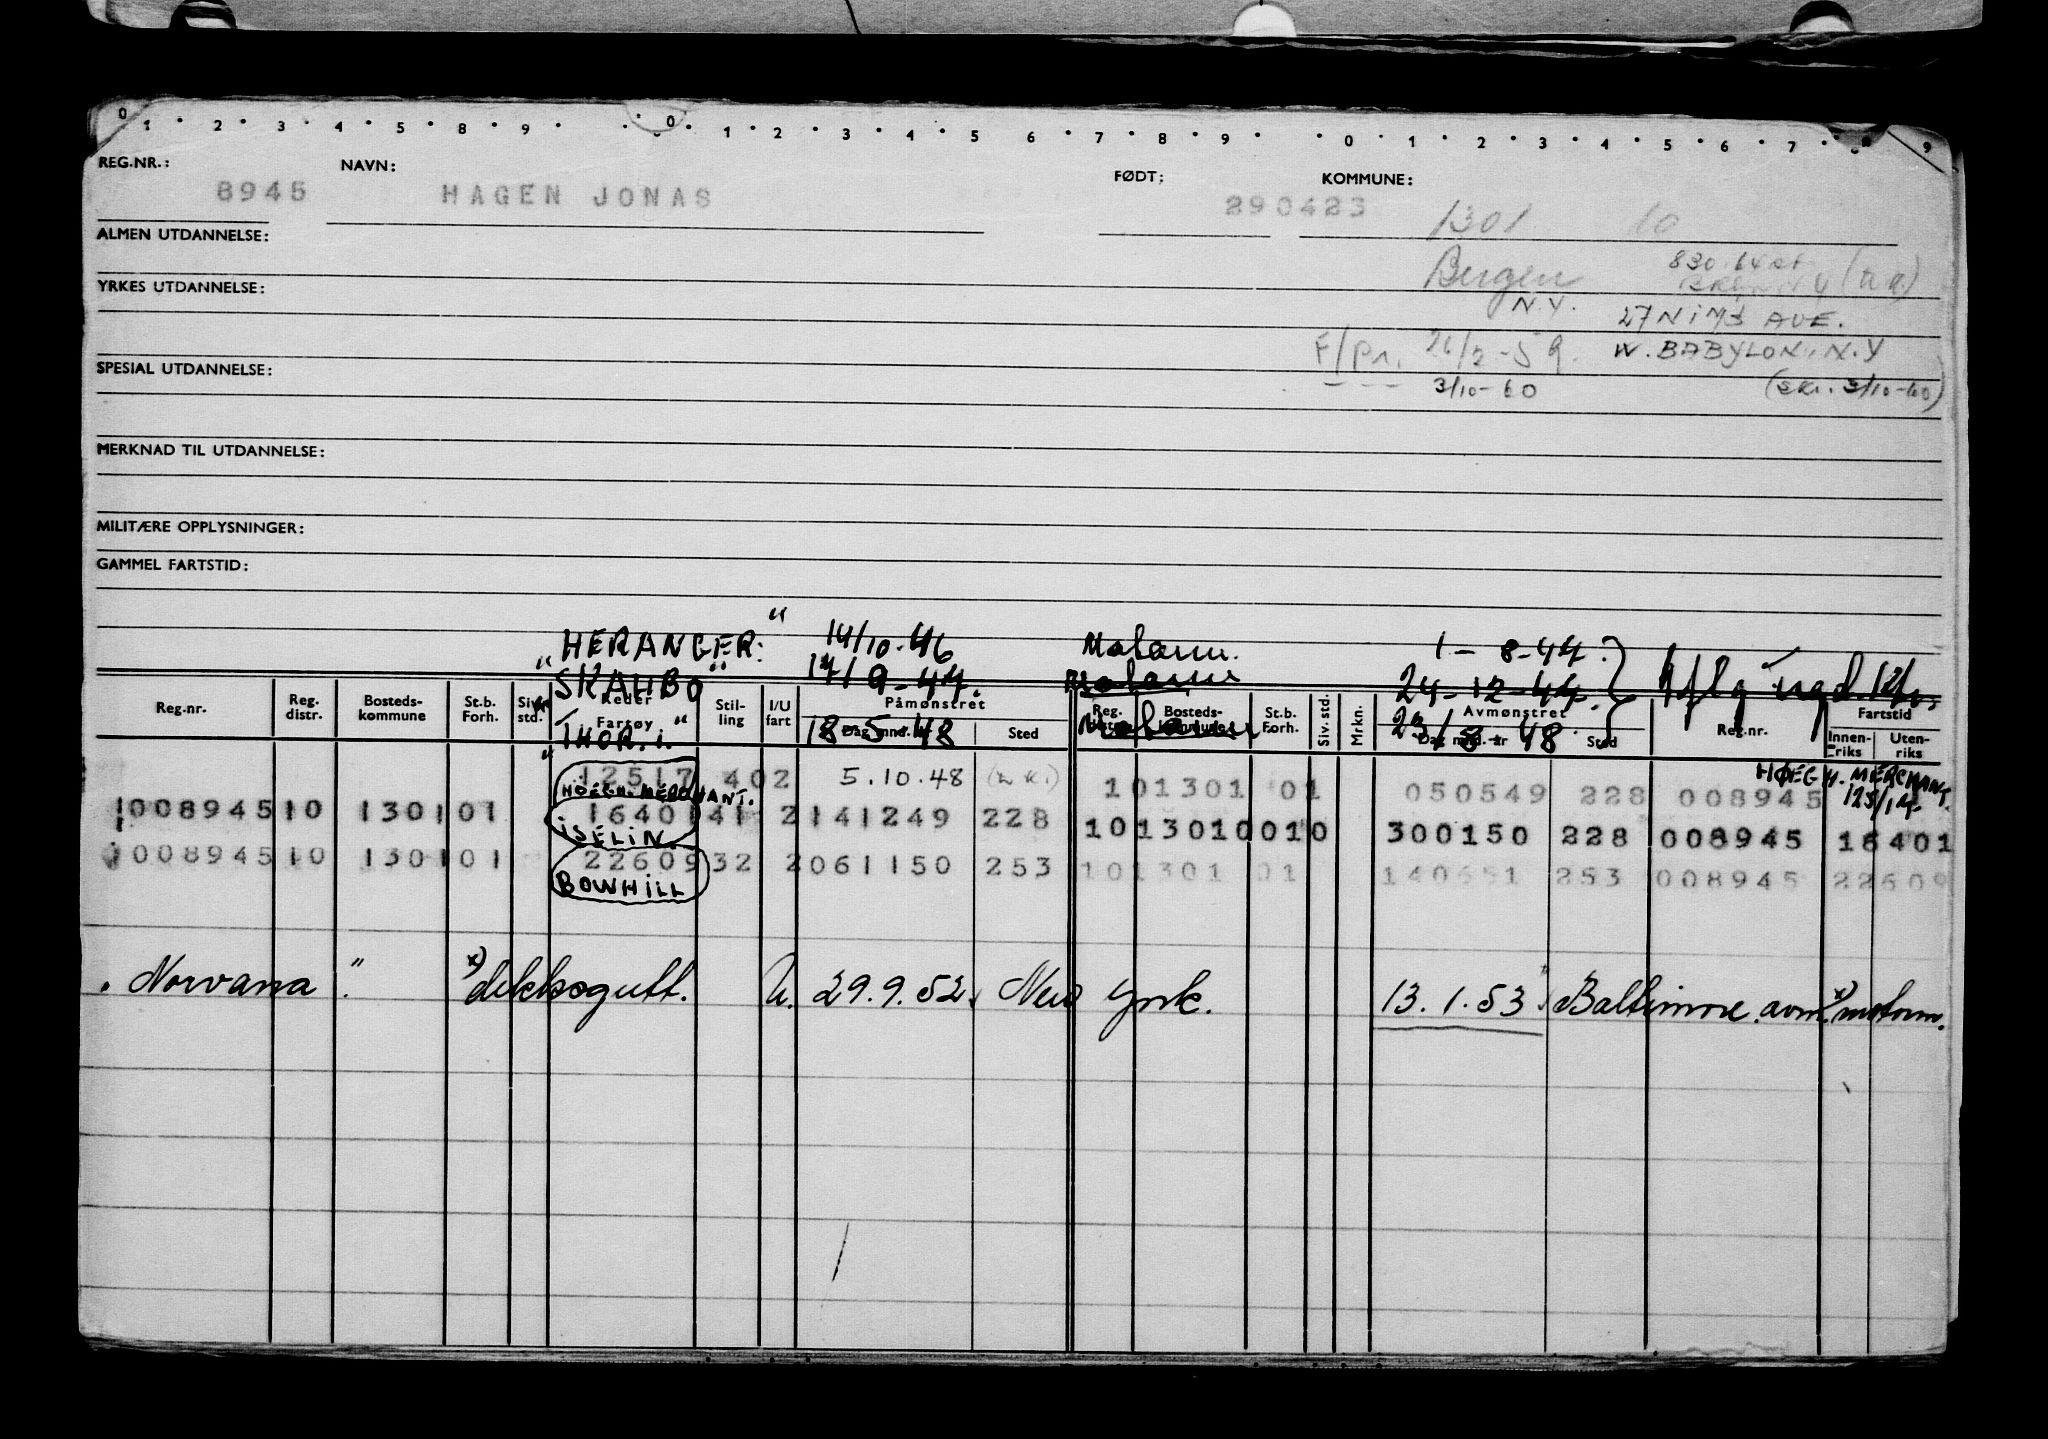 0 1 2 3 4 5 8 9 0 1 2 3 4 5 6 7 8 9 0 1 2 3 4 5 6 7 8 9
REG.NR.: NAVN: FØDT: KOMMUNE:
8945 HAGEN JONAS 290423 1301 10
ALMEN UTDANNELSE:
Bergen 830. 64 st
N.Y.
YRKES UTDANNELSE:
27 NiMS AVE.
F/Pr. 26/2-59. W. BABYLON. N.Y
SPESIAL UTDANNELSE:
3/10-60 (skr. 3/10-60)
MERKNAD TIL UTDANNELSE:
MILITÆRE OPPLYSNINGER:
GAMMEL FARTSTID:
"HERANGER." 14/10.46 Matarm. 1-8-47.
"SKAUBO" 17/9-47. 24-12-47.
"THOR. i." 18-5-48 23/8 48
Reg.nr. Reg. distr. Bosteds-kommune St.b. Forh. Siv. std. Reder Fartøy Stil-ling I/U fart Påmønstret Dag mnd. år Sted Reg. distr. Bosteds-kommune St.b. Forh. Siv. std. Mrkn. Avmønstret Dag mnd. år Sted Reg.nr. Fartstid Innen-riks Uten-riks
12517 402 5.10.48 (z ki) 101301 01 050549 228 008945 HØEG H. MERCHANT.
HØEGH. MERCHANT. 125/17
100894510 130101 16401 41 2 141249 228 1013010010 300150 228 008945 16401
iSELiN.
100894510 130101 22609 32 2 061150 253 101301 01 140651 253 008945 22609
BOWHiLL
"Norvana" x) dekksgutt. U. 29.9.52. New York. 13.1.53. Baltimore. avm. x) motorm.